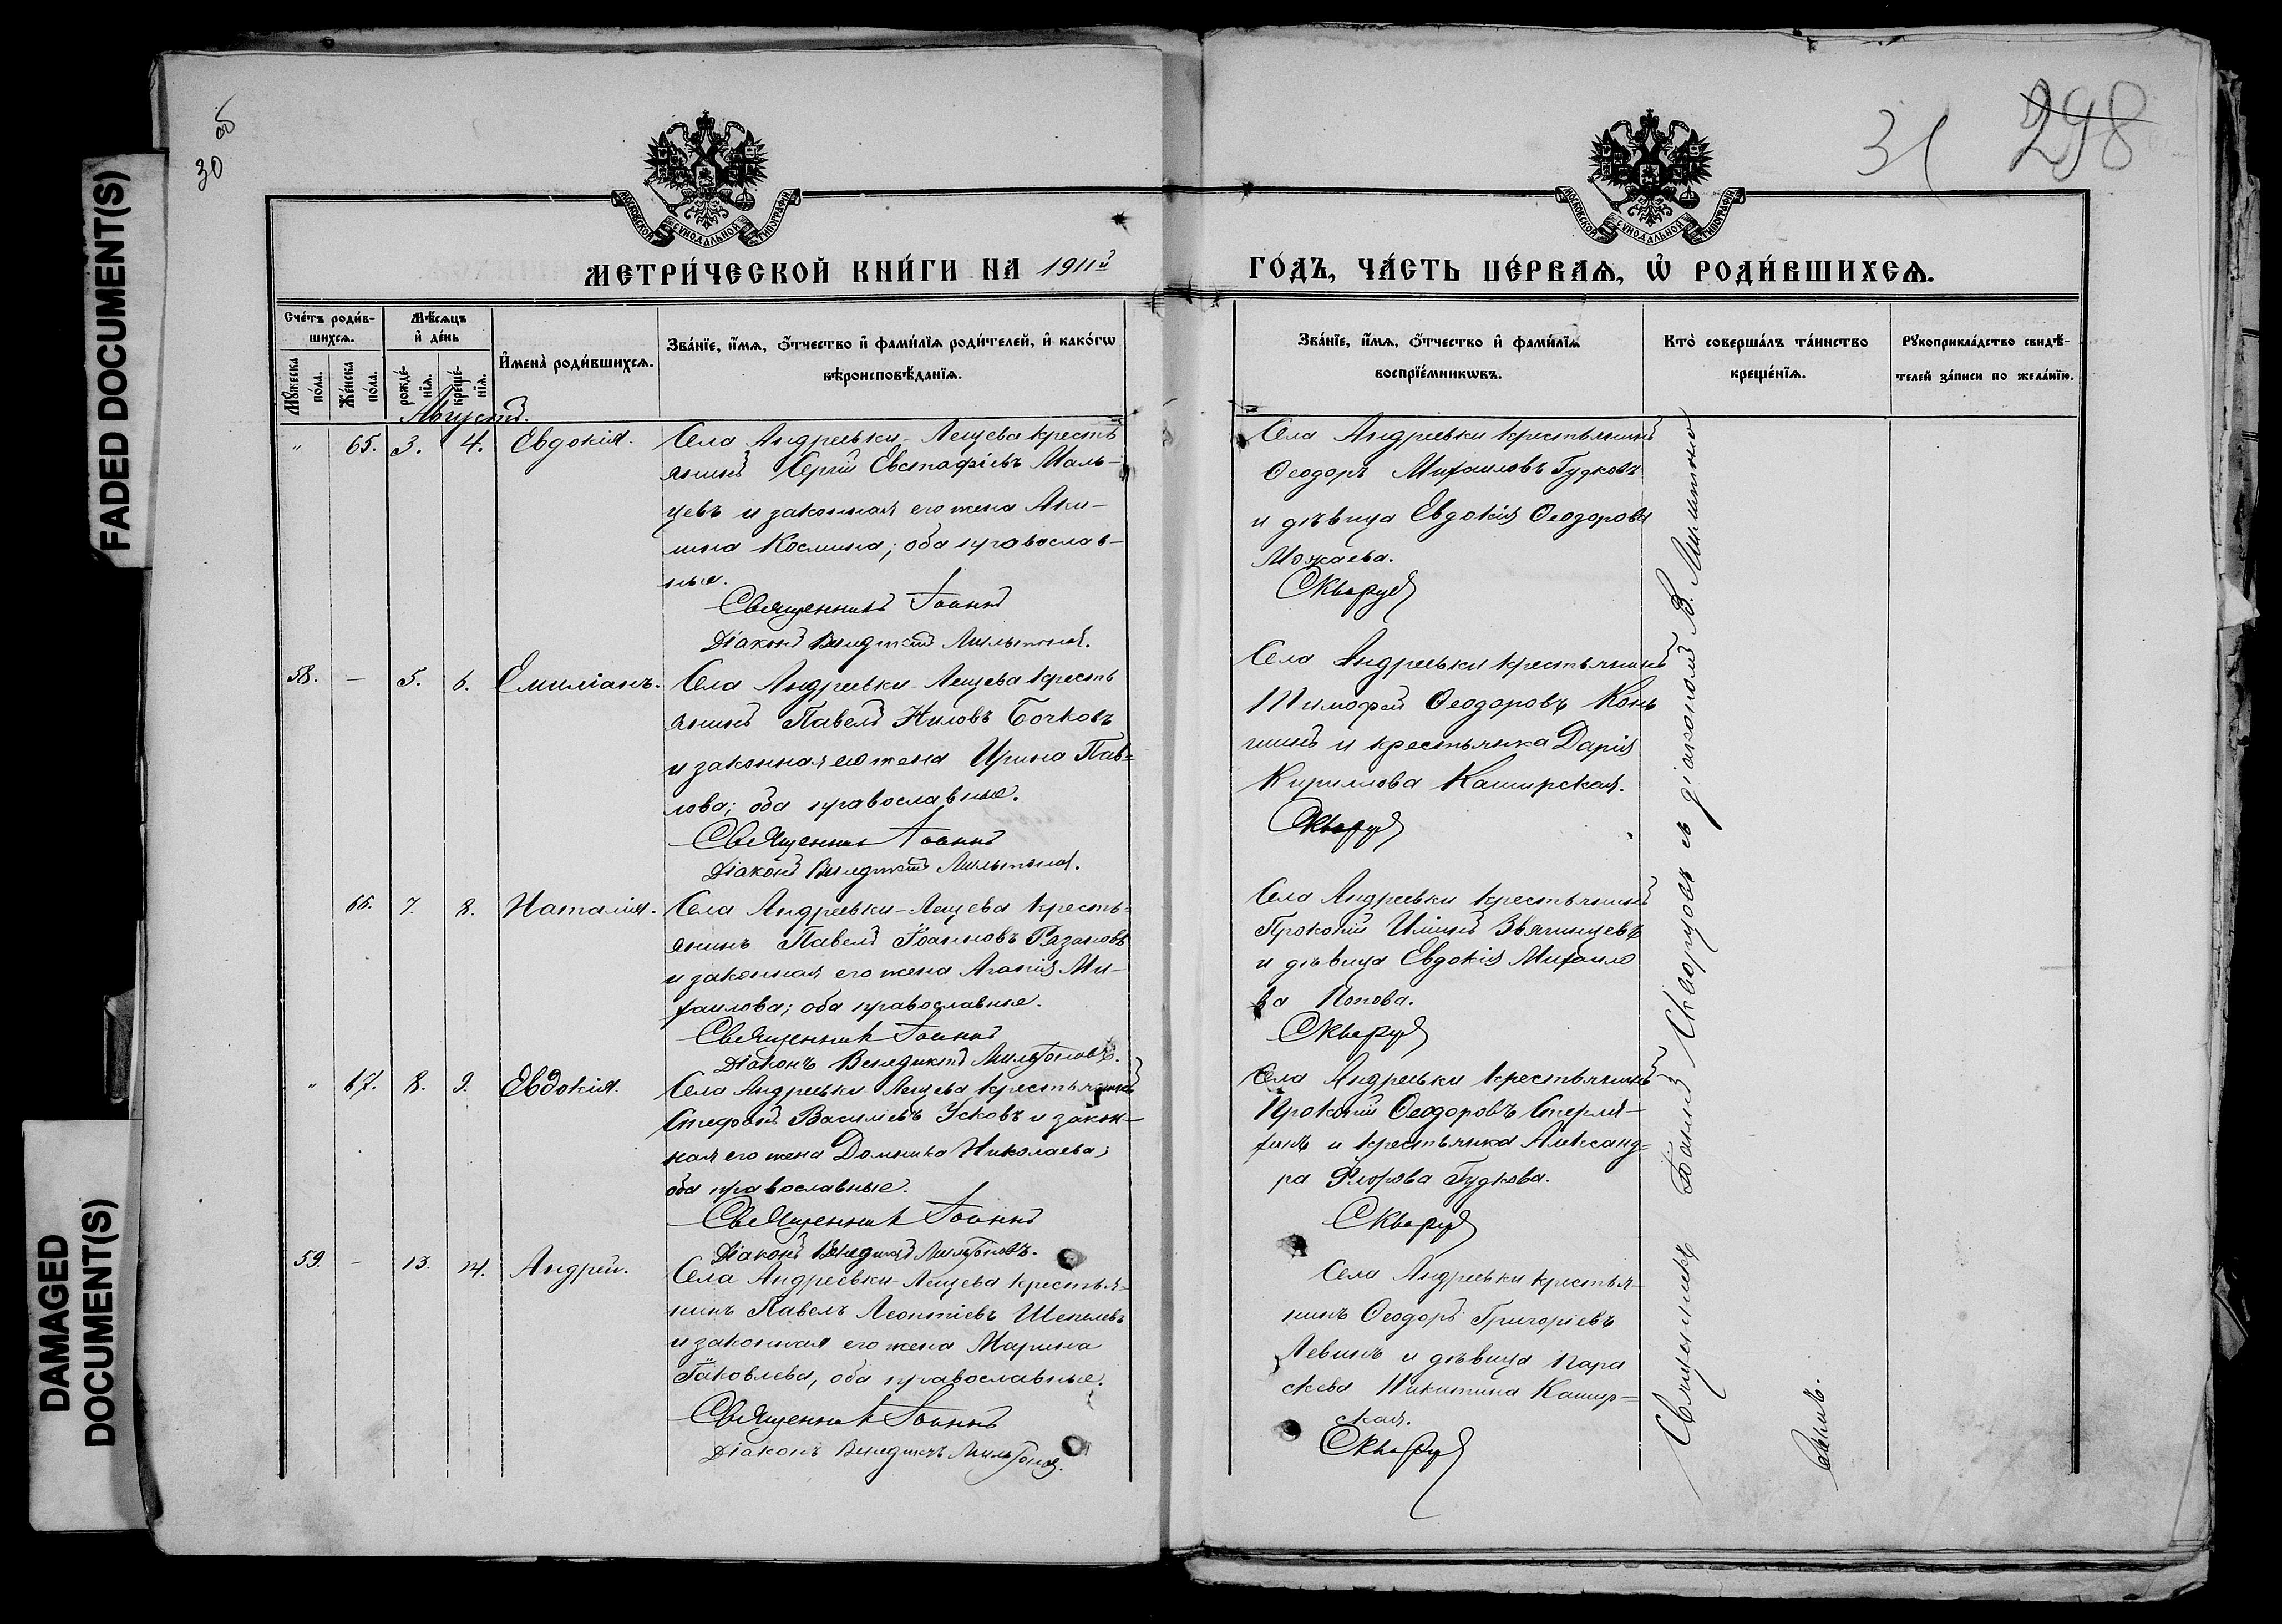 FADED DOCUMENT(S)
DAMAGED
DOCUMENT(S)
об
30
31
298
МОСКОВСКОЙ СѴНОДАЛЬНОЙ ТИПОГРАФІИ
МОСКОВСКОЙ СѴНОДАЛЬНОЙ ТИПОГРАФІИ
МЕТРИ́ЧЕСКОЙ КНИ́ГИ НА 1911й
ГО́ДЪ, ЧА́СТЬ ПЕ́РВАѦ, Ѡ҆ РОДИ́ВШИХСѦ.
Сче́тъ роди́в-
шихсѧ.
Мꙋ́жеска
по́ла.
Же́нска
по́ла.
Мѣ́сѧцъ
и҆ де́нь
рожде́-
нїѧ.
креще́-
нїѧ.
И҆мена̀ роди́вшихсѧ.
Зва́нїе, и҆́мѧ, ѻ҆́тчество и҆ фами́лїѧ роди́телей, и҆ како́гѡ
вѣроисповѣ́данїѧ.
Зва́нїе, и҆́мѧ, ѻ҆́тчество и҆ фами́лїѧ
воспрїе́мникѡвъ.
Кто̀ соверша́лъ та́инство
креще́нїѧ.
Рꙋкоприкла́дство свидѣ́-
телей за́писи по жела́нїю.
Августъ.
" 65. 3. 4. Евдокія.
Села Андреевки-Лещева кресть
янинъ Сергій Евстафіевъ Маль-
цевъ и законная его жена Аки-
лина Космина; оба православ-
ные.
Священникъ Іоаннъ
Діаконъ Венедиктъ Мильтоновъ.
Села Андреевки крестьянинъ
Ѳеодоръ Михаиловъ Гудковъ
и дѣвица Евдокія Ѳеодорова
Можаева.
Скворцовъ
58. — 5. 6. Емиліанъ.
Села Андреевки-Лещева кресть
янинъ Павелъ Ниловъ Бочковъ
и законная его жена Ирина Пав-
лова; оба православные.
Священникъ Іоаннъ
Діаконъ Венедиктъ Мильтоновъ.
Села Андреевки крестьянинъ
Тимофей Ѳеодоровъ Конь
шинъ и крестьянка Дарія
Кириллова Каширская.
Скворцовъ
66. 7. 8. Наталія.
Села Андреевки-Лещева кресть-
янинъ Павелъ Іоанновъ Разановъ
и законная его жена Агапія Ми-
хаилова; оба православные.
Священникъ Іоаннъ
Діаконъ Венедиктъ Мильтоновъ.
Села Андреевки крестьянинъ
Прокопій Ильинъ Звягинцевъ
и дѣвица Евдокія Михаило
ва Попова.
Скворцовъ
" 67. 8. 9. Евдокія.
Села Андреевки-Лещева крестьянинъ
Стефанъ Василіевъ Усковъ и закон-
ная его жена Домника Николаева;
оба православные.
Священникъ Іоаннъ
Діаконъ Венедиктъ Мильтоновъ.
Села Андреевки крестьянинъ
Прокопій Ѳеодоровъ Стерля-
хинъ и крестьянка Александ-
ра Флорова Гудкова.
Скворцовъ
59. — 13. 14. Андрей.
Села Андреевки-Лещева крестья-
нинъ Павелъ Леонтіевъ Шепелевъ
и законная его жена Марина
Іаковлева, оба православные.
Священникъ Іоаннъ
Діаконъ Венедиктъ Мильтоновъ.
Села Андреевки крестья-
нинъ Ѳеодоръ Григоріевъ
Левинъ и дѣвица Пара
скева Никитина Кашир-
ская.
Скворцовъ
Священникъ Іоаннъ Скворцовъ съ діакономъ В. Мильтоно
вымъ.